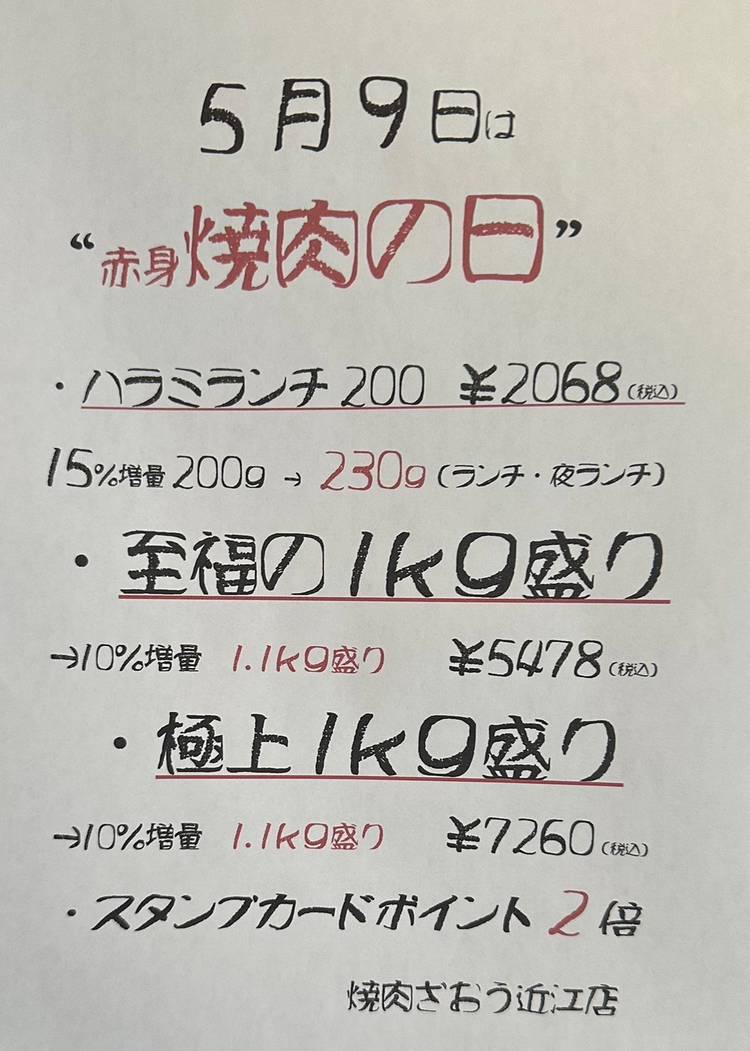 5月9日は
“赤身焼肉の日”
・ハラミランチ200 ¥2068(税込)
15%増量 200g → 230g(ランチ・夜ランチ)
・至福の1kg盛り
→10%増量 1.1kg盛り ¥5478(税込)
・極上1kg盛り
→10%増量 1.1kg盛り ¥7260(税込)
・スタンプカードポイント2倍
焼肉ざおう近江店